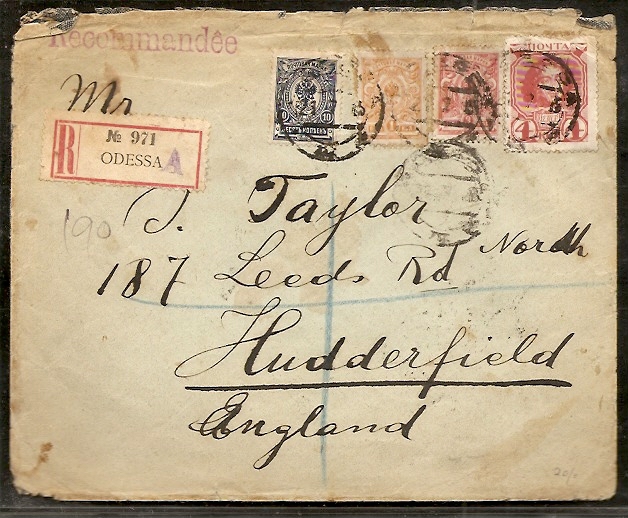 Recommandée
ПОЧТА
10 10
4 4
Mr
R № 971
ODESSA A
190
J. Taylor
187 Leeds Rd North
Hudderfield
England
20/-